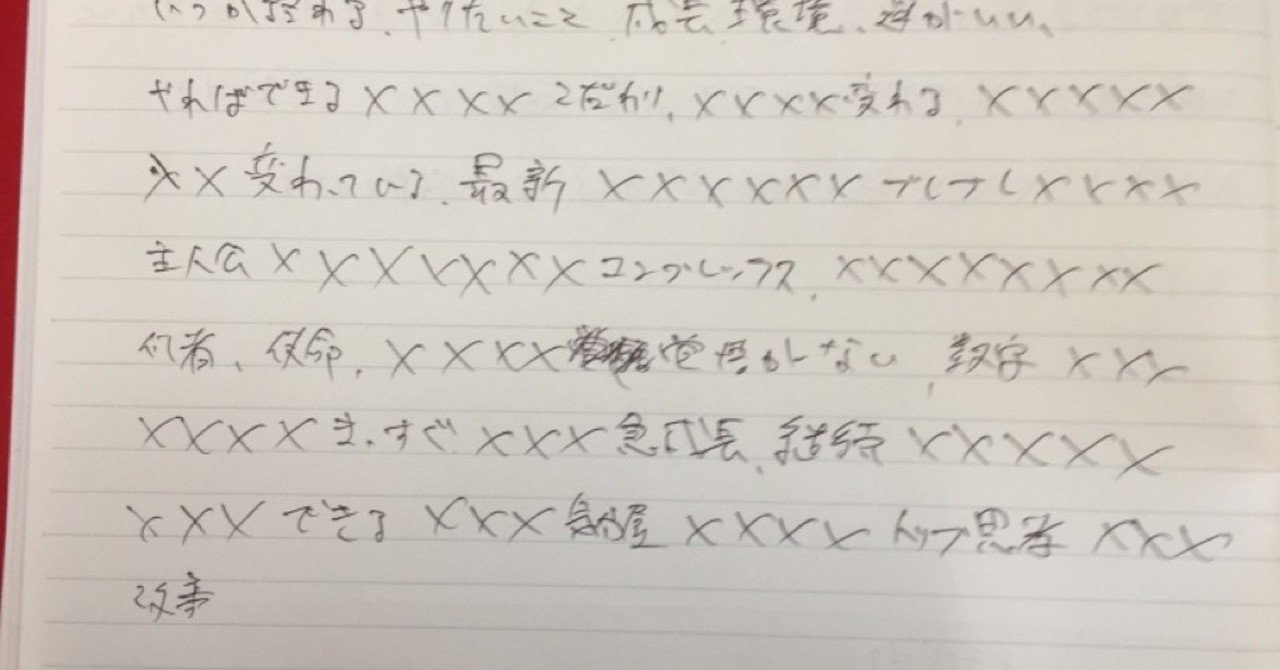 やりたいこと、成長環境、運がいい、
やればできる××××こだわり、××××変われる、×××××
××変わっている、最新××××××ブレブレ××××
主人公×××××××コンプレックス、××××××××
何者、使命、××××が一ない、数字×××
××××ま、すぐ×××急成長、継続×××××
×××できる×××部屋××××トップ思考×××
改革